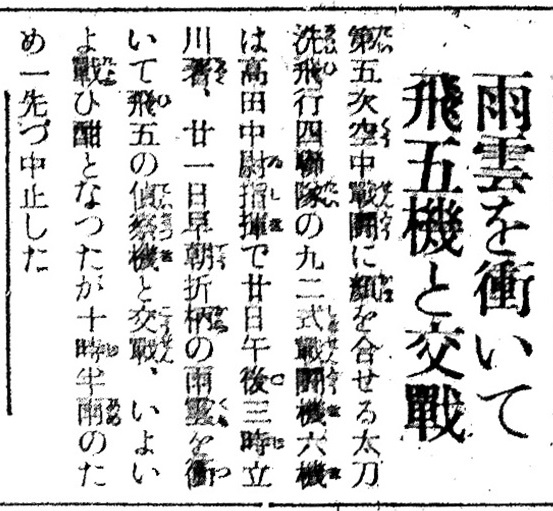 雨雲を衝いて
飛五機と交戰
第五次空中戰鬪に顏を合せる太刀
洗飛行四聯隊の九二式戰鬪機六機
は高田中尉指揮で廿日午後三時立
川著、廿一日早朝折柄の雨雲を衝
いて飛五の偵察機と交戰、いよい
よ戰ひ酣となつたが十時半雨のた
め一先づ中止した